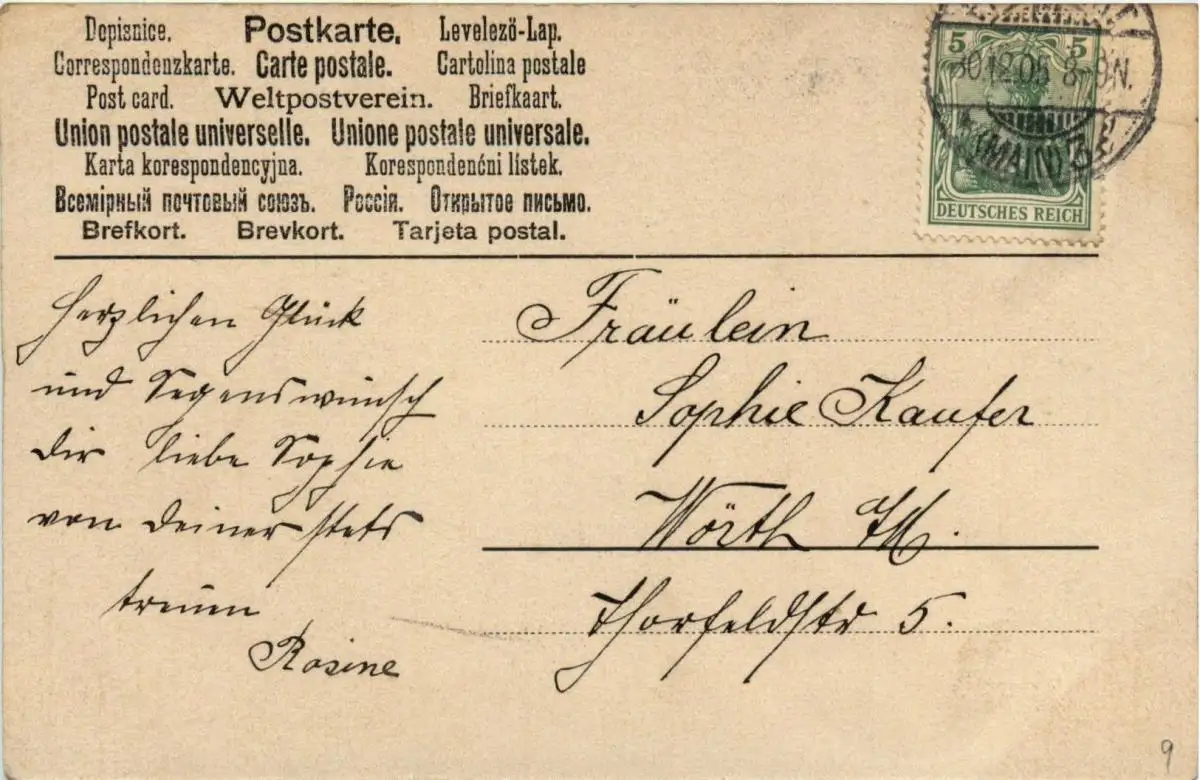 Dopisnice. Postkarte. Levelező-Lap.
Correspondenzkarte. Carte postale. Cartolina postale
Post card. Weltpostverein. Briefkaart.
Union postale universelle. Unione postale universale.
Karta korespondencyjna. Korespondenčni listek.
Всемірный почтовый союзъ. Россія. Открытое письмо.
Brefkort. Brevkort. Tarjeta postal.
5 5
30.12.05 8-9N.
(MAIN)
DEUTSCHES REICH
Herzlichen Glück
und Segenswunsch
dir liebe Sophie
von deiner stets
treuen
Rosine
Fräulein
Sophie Kaufer
Wörth
Thorfeldstr 5.
9